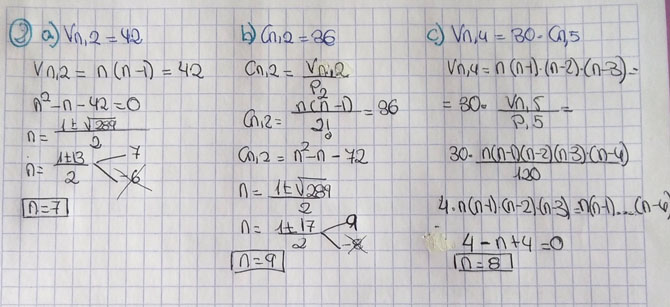 2 a) Vn,2 = 42
Vn,2 = n(n-1) = 42
n² - n - 42 = 0
n = 1±√289 / 2
n = 1±13 / 2 < 7 -6
n=7
b) Cn,2 = 36
Cn,2 = Vn,2 / P2
Cn,2 = n(n-1) / 2! = 36
Cn,2 = n² - n - 72
n = 1±√289 / 2
n = 1±17 / 2 < 9 -8
n=9
c) Vn,4 = 30·Cn,5
Vn,4 = n(n-1)·(n-2)·(n-3) =
= 30· Vn,5 / P,5 =
30· n(n-1)(n-2)(n-3)·(n-4) / 120
4·n(n-1)·(n-2)·(n-3) = n(n-1)....(n-4)
4 - n + 4 = 0
n = 8